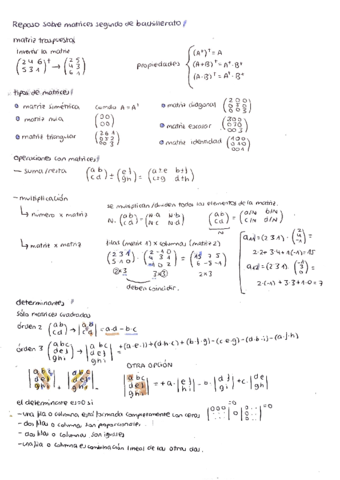 Repaso sobre matrices segundo de bachillerato
matriz traspuesta
invertir la matriz
(2 4 6 / 5 3 1)ᵗ → (2 5 / 4 3 / 6 1)
propiedades { (Aᵗ)ᵗ = A
(A+B)ᵗ = Aᵗ + Bᵗ
tipos de matrices
matriz simétrica cuando A = Aᵗ
matriz diagonal (2 0 0 / 0 3 0 / 0 0 3)
matriz nula (0 0 / 0 0)
matriz escalar
matriz triangular
matriz identidad (1 0 0 / 0 1 0 / 0 0 1)
operaciones con matrices
- suma/resta (a b / c d) ± (e f / g h) = (a±e b±f / c±g d±h)
- multiplicación
se multiplican/dividen todos los elementos de la matriz.
↳ número x matriz N·(a b / c d) = (N·a N·b / N·c N·d) (a b / c d) / N = (a/N b/N / c/N d/N)
↳ matriz x matriz filas (matriz 1) x columnas (matriz 2)
(2 3 1 / 5 1 0)
2x3 3x3 2x3
deben coincidir.
determinantes
sólo matrices cuadradas
órden 2 (a b / c d) → |a b / c d| = a·d - b·c
órden 3 (a b c / d e f / g h i) → |a b c / d e f / g h i| = +(a·e·i)+(d·h·c)+(b·f·g)-(c·e·g)-(d·b·i)-(a·f·h)
OTRA OPCIÓN
|a b c / d e f / g h i| |a b c / d e f / g h i| |a b c / d e f / g h i| = +a·|e f / h i| - b·|d f / g i| + c·|d e / g h|
el determinante es=0 si:
- una fila o columna está formada completamente con ceros
- dos filas o columnas son proporcionales
- dos filas o columnas son iguales
- una fila o columna es combinación lineal de las otras dos.